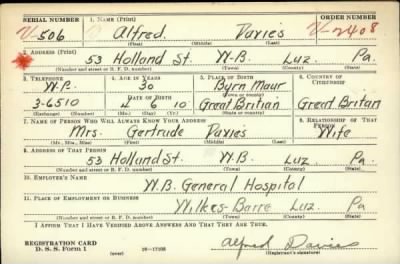 SERIAL NUMBER 1. NAME (Print) ORDER NUMBER
V-506 Alfred. Davies V-2408
(First) (Middle) (Last)
2. ADDRESS (Print)
53 Holland St. W-B. Luz. Pa.
(Number and street or R. F. D. number) (Town) (County) (State)
3. TELEPHONE 4. AGE IN YEARS 5. PLACE OF BIRTH 6. COUNTRY OF CITIZENSHIP
W.P. 30 Byrn Maur
DATE OF BIRTH (Town or county)
3-6510 4 6 10 Great Britian Great Britan
(Exchange) (Number) (Mo.) (Day) (Yr.) (State or country)
7. NAME OF PERSON WHO WILL ALWAYS KNOW YOUR ADDRESS 8. RELATIONSHIP OF THAT PERSON
Mrs. Gertrude Davies Wife
(Mr., Mrs., Miss) (First) (Middle) (Last)
9. ADDRESS OF THAT PERSON
53 Holland St. W.B. Luz Pa.
(Number and street or R. F. D. number) (Town) (County) (State)
10. EMPLOYER'S NAME
W.B. General Hospital
11. PLACE OF EMPLOYMENT OR BUSINESS
Wilkes-Barre Luz. Pa
(Number and street or R. F. D. number) (Town) (County) (State)
I AFFIRM THAT I HAVE VERIFIED ABOVE ANSWERS AND THAT THEY ARE TRUE.
REGISTRATION CARD
D. S. S. Form 1 (over) Alfred Davies
(Registrant's signature)